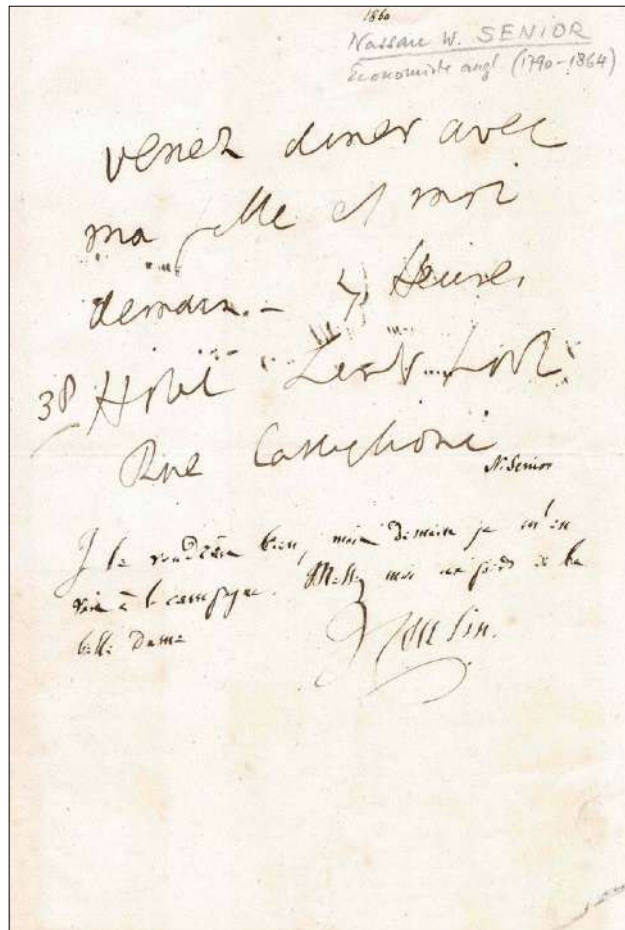 1860
Nassau W. SENIOR
Economiste angl. (1790-1864)
venez diner avec
ma fille et moi
demain. - 7 Heures
38 Hotel
Rue Castiglione
N. Senior
Je le voudrais bien, mais demain je m'en
vais à la campagne. Mettez moi aux pieds de la
belle dame